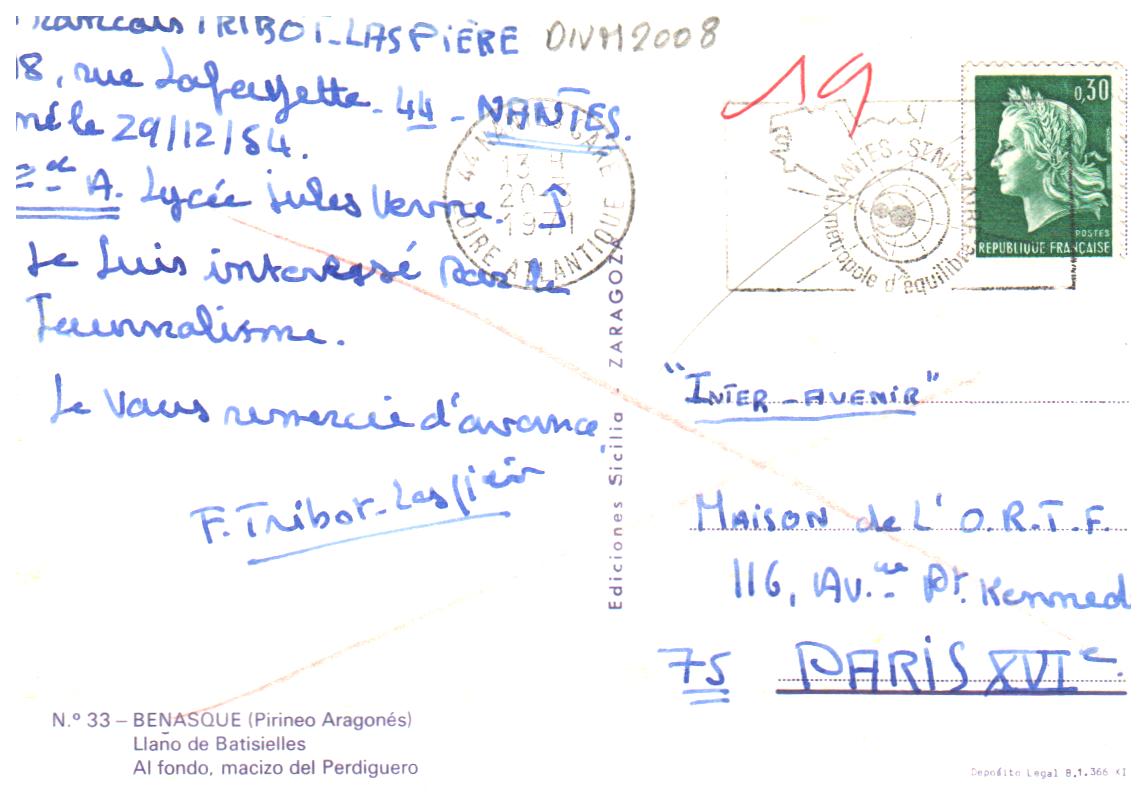 François TRIBOT-LASPIÈRE
18, rue Lafayette - 44 - NANTES.
né le 29/12/54.
2de A. Lycée Jules Verne.
Je suis intéressé par le
Journalisme.
Je vous remercie d'avance.
F. Tribot-Laspière
N.º 33 – BENASQUE (Pirineo Aragonés)
Llano de Batisielles
Al fondo, macizo del Perdiguero
DIVM2008
19
44 NANTES GARE
13 H
20
1971
LOIRE ATLANTIQUE
NANTES-ST NAZAIRE
métropole d'équilibre
0,30
POSTES
REPUBLIQUE FRANÇAISE
Ediciones Sicilia - ZARAGOZA
"INTER-AVENIR"
MAISON de L'O.R.T.F.
116, AV.ue Pt. Kenned
75 PARIS XVIe.
Deposito Legal B.1.366 XI